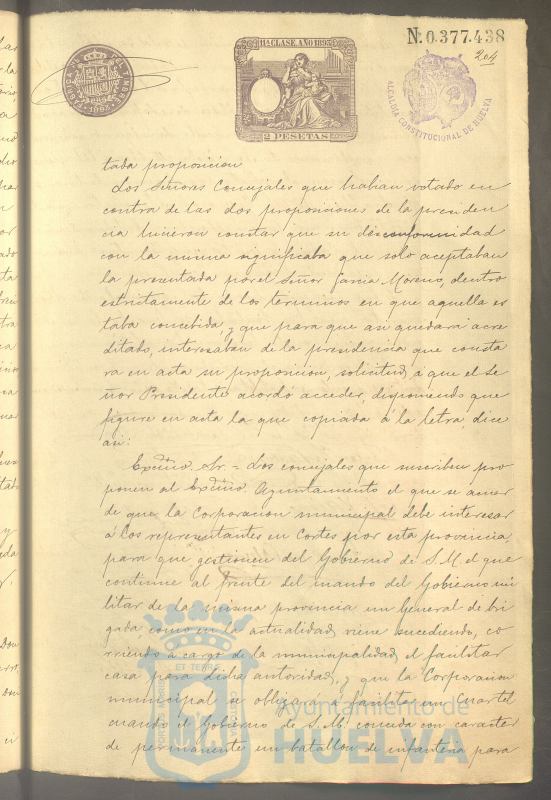 Nº 0.377.438
204
11ª CLASE, AÑO 1893
2 PESETAS
ALCALDIA CONSTITUCIONAL DE HUELVA
tada proposicion
Los Señores Concejales que habian votado en
contra de las dos proposiciones de la presiden
cia hicieron constar que su disconformidad
con la misma significaba que solo aceptaban
la presentada por el Señor Garcia Moreno, dentro
estrictamente de los términos en que aquella es
taba concebida, y que para que asi quedara acre
ditado, interesaban de la presidencia que consta
ra en acta su proposicion, solicitud á que el Se
ñor Presidente acordó acceder, disponiendo que
figure en acta la que copiada á la letra, dice
asi:
Excmo. Sr. = Los concejales que suscriben pro
ponen al Excmo. Ayuntamiento el que se acuer
de que la Corporacion municipal debe interesar
á los representantes en Cortes por esta provincia,
para que gestionen del Gobierno de S. M. el que
continue al frente del mando del Gobierno mi
litar de la misma provincia un General de bri
gada como en la actualidad viene sucediendo, co
rriendo á cargo de la municipalidad el facilitar
casa para dicha autoridad, y que la Corporacion
municipal se obliga á facilitar un Cuartel
cuando el Gobierno de S. M. conceda con caracter
de permanente un batallon de infanteria para
Ayuntamiento de
HUELVA